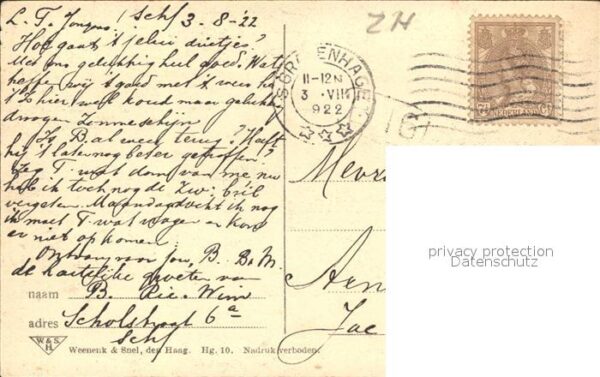 L. T. Jongens, Schf 3-8-'22
Hoe gaat 't jelui drietjes?
Met ons gelukkig heel goed. Wat
treffen wij 't goed met 't weer hè
't Is hier wel koud maar gelukkig
droog en zonneschijn
Is B. al weer terug? Heeft
hij 't later nog beter getroffen?
Zeg T. wat dom van me nu
heb ik toch nog de Zw. bril
vergeten. Maandag dacht ik nog
ik moet T. wat vragen en kon
er niet op komen.
Ontvang voor jou, B. B. M.
de hartelijke groeten van
naam B. Rie. Wim
adres Scholstraat 6a
Schf
W & S H.
Weenenk & Snel, den Haag. Hg. 10. Nadruk verboden.
ZH
'S GRAVENHAGE
11-12N
3 VIII
1922
NEDERLAND
Mevr
privacy protection
Datenschutz
Jac